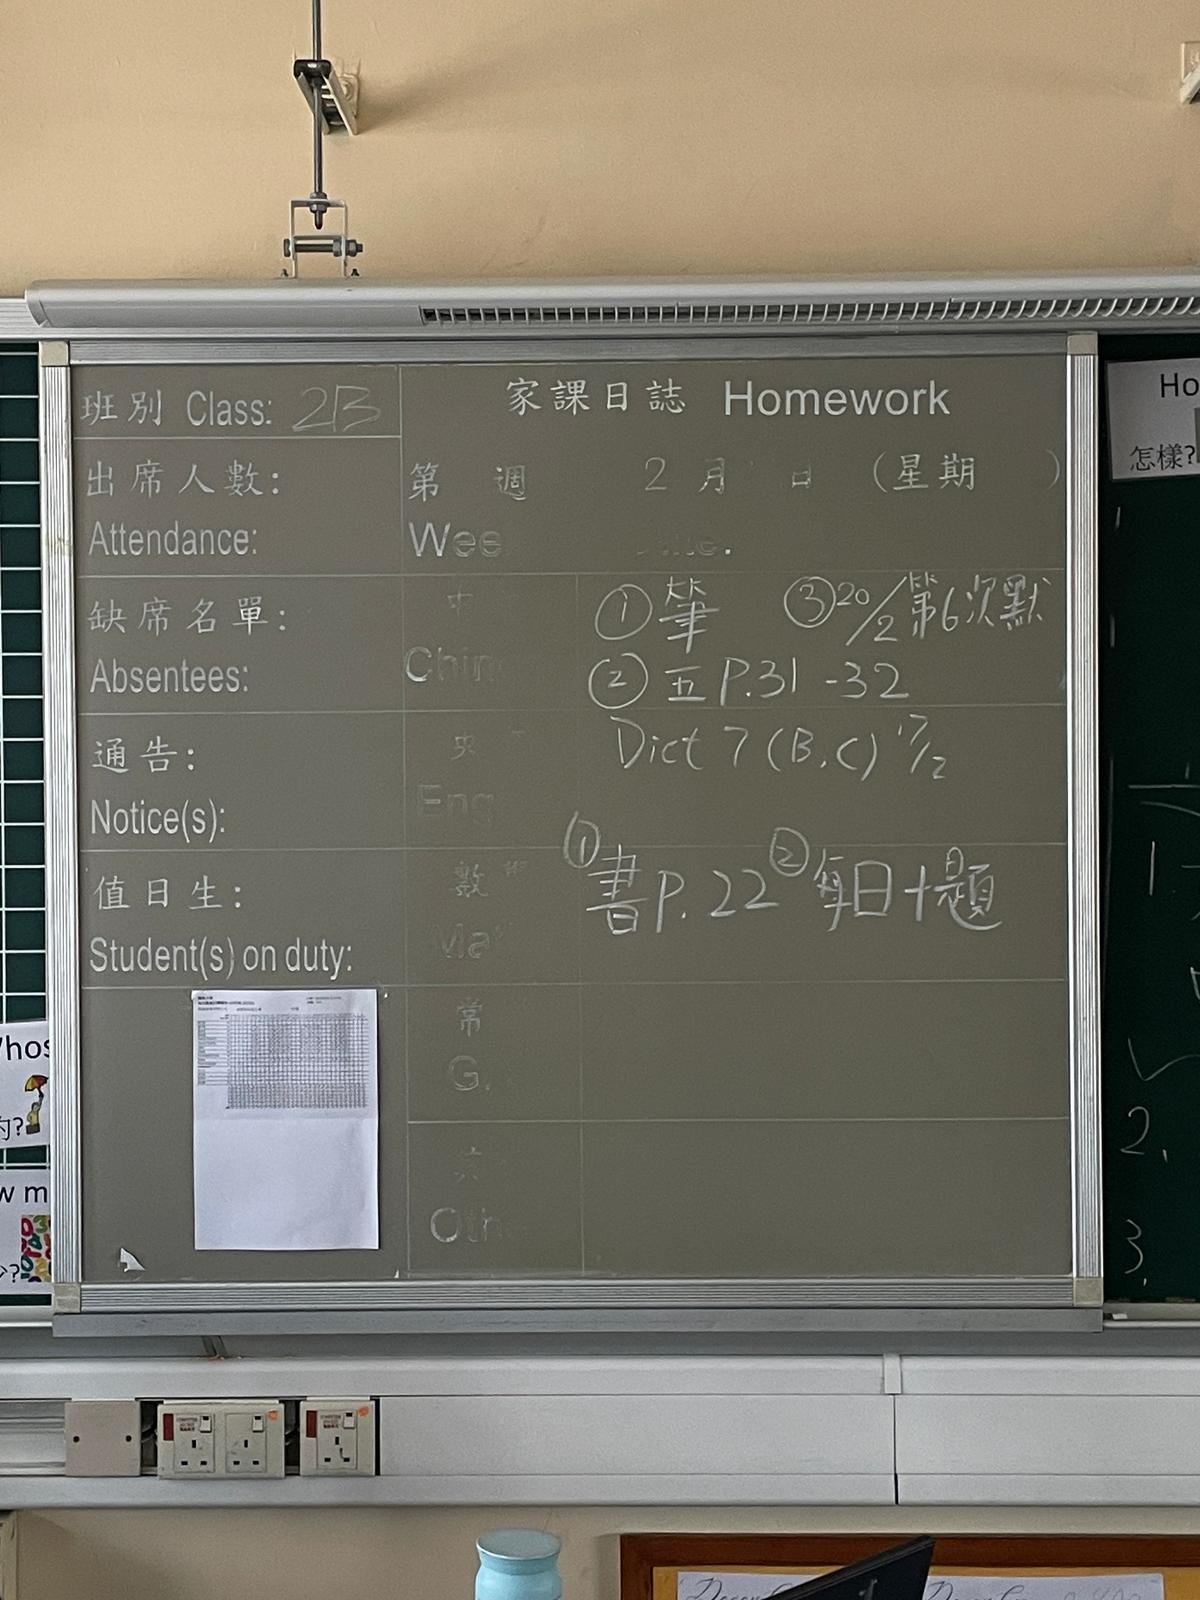 班別 Class: 2B
家課日誌 Homework
出席人數:
Attendance:
第 週 2 月 日 (星期 )
Wee
缺席名單:
Absentees:
中
Chin
① 筆 ③ 20/2 第6次默
② 五 P.31-32
通告:
Notice(s):
Eng
Dict 7 (B,C) 17/2
值日生:
Student(s) on duty:
數
Ma
① 書 P.22 ② 每日十題
常
G.
Oth
Ho
怎樣?
1.
2.
3.
Whos
的?
w m
少?